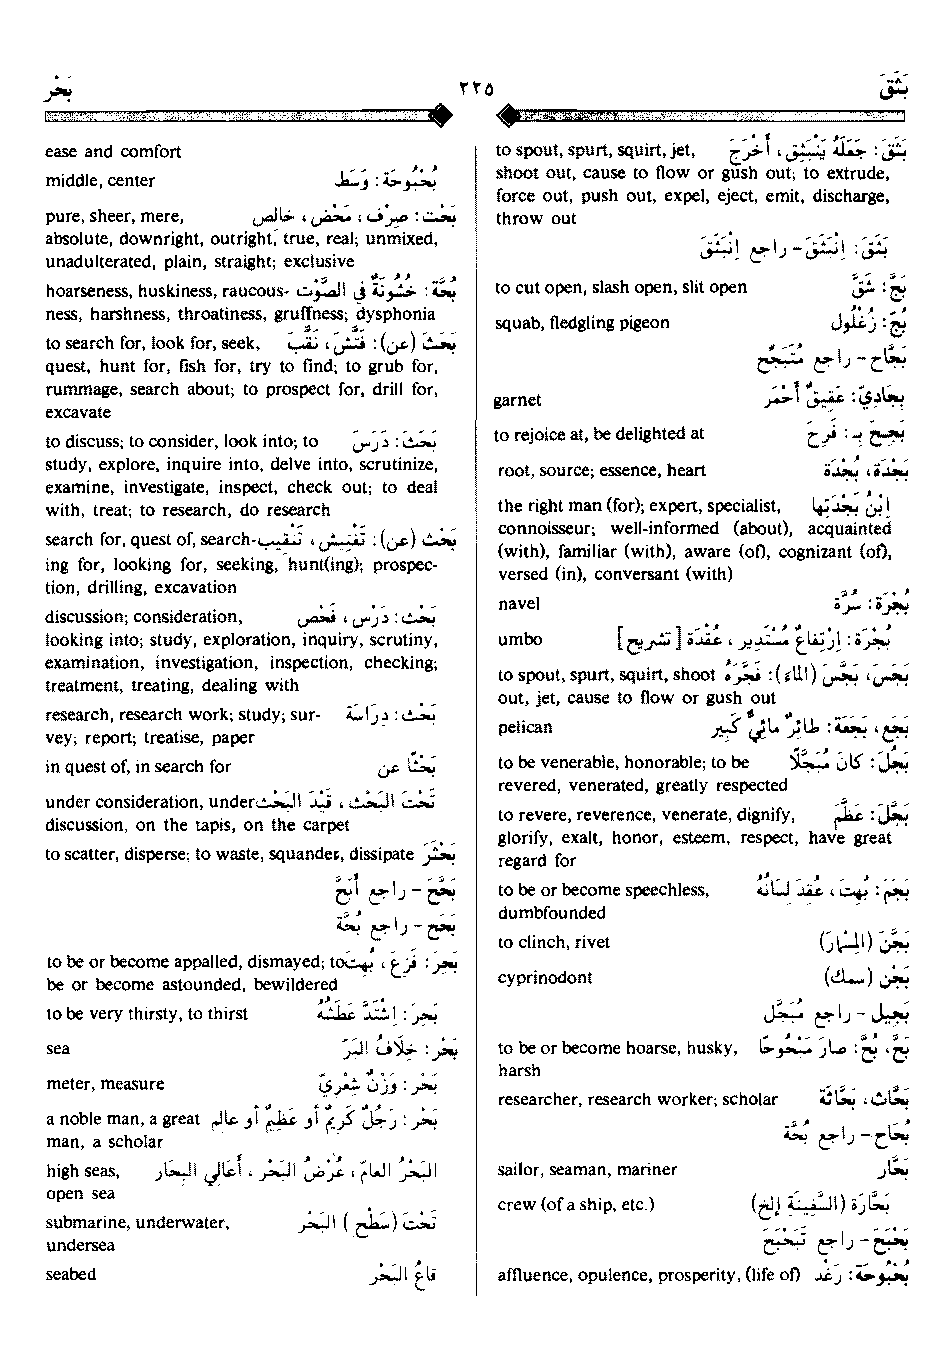 بَثَقَ
٢٢٥
بَحْر
to spout, spurt, squirt, jet, بَثَقَ: جَعَلَهُ يَنْبَثِقُ، أَخْرَجَ
shoot out, cause to flow or gush out; to extrude,
force out, push out, expel, eject, emit, discharge,
throw out
بَثْق: اِنْبَثَقَ - راجع اِنْبَثَقَ
to cut open, slash open, slit open بَجَّ: شَقَّ
squab, fledgling pigeon بُجّ: زُغْلُول
بَجَّاح - راجع مُتَبَجِّح
garnet بِجَادِيّ: عَقِيقٌ أَحْمَر
to rejoice at, be delighted at بَجِحَ بِـ: فَرِحَ
root, source; essence, heart بَجْدَة، بُجْدَة
the right man (for); expert, specialist, اِبْنُ بَجْدَتِها
connoisseur; well-informed (about), acquainted
(with), familiar (with), aware (of), cognizant (of),
versed (in), conversant (with)
navel بُجْرَة: سُرَّة
umbo بُجْرَة: اِرْتِفاعٌ مُسْتَدِير، عُقْدَة [تشريح]
to spout, spurt, squirt, shoot بَجَسَ، بَجَّسَ (الماءَ): فَجَّرَهُ
out, jet, cause to flow or gush out
pelican بَجَع، بَجَعَة: طائِرٌ مائِيٌّ كَبِير
to be venerable, honorable; to be بَجُلَ: كَانَ مُبَجَّلًا
revered, venerated, greatly respected
to revere, reverence, venerate, dignify, بَجَّلَ: عَظَّمَ
glorify, exalt, honor, esteem, respect, have great
regard for
to be or become speechless, بَجَمَ: بُهِتَ، عُقِدَ لِسَانُهُ
dumbfounded
to clinch, rivet بَجَّنَ (المِسْمَارَ)
cyprinodont بَجَن (سمك)
بَجِيل - راجع مُبَجَّل
to be or become hoarse, husky, بَحَّ، بُحَّ: صَارَ مَبْحُوحًا
harsh
researcher, research worker; scholar بَحَّاث، بَحَّاثَة
بُحَاح - راجع بُحَّة
sailor, seaman, mariner بَحَّار
crew (of a ship, etc.) بَحَّارَة (السَّفِينَة إلخ)
بَحْبَحَ - راجع تَبَحْبَحَ
affluence, opulence, prosperity, (life of) بُحْبُوحَة: رَغَد
ease and comfort
middle, center بُحْبُوحَة: وَسَط
pure, sheer, mere, بَحْت: صِرْف، مَحْض، خالِص
absolute, downright, outright, true, real; unmixed,
unadulterated, plain, straight; exclusive
hoarseness, huskiness, raucous- بُحَّة: خُشُونَةٌ في الصَّوْت
ness, harshness, throatiness, gruffness; dysphonia
to search for, look for, seek, بَحَثَ (عن): فَتَّشَ، نَقَّبَ
quest, hunt for, fish for, try to find; to grub for,
rummage, search about; to prospect for, drill for,
excavate
to discuss; to consider, look into; to بَحَثَ: دَرَسَ
study, explore, inquire into, delve into, scrutinize,
examine, investigate, inspect, check out; to deal
with, treat; to research, do research
search for, quest of, search- بَحْث (عن): تَفْتِيش، تَنْقِيب
ing for, looking for, seeking, hunt(ing); prospec-
tion, drilling, excavation
discussion; consideration, بَحْث: دَرْس، فَحْص
looking into; study, exploration, inquiry, scrutiny,
examination, investigation, inspection, checking;
treatment, treating, dealing with
research, research work; study; sur- بَحْث: دِرَاسَة
vey; report; treatise, paper
in quest of, in search for بَحْثًا عن
under consideration, under تَحْتَ البَحْث، قَيْدَ البَحْث
discussion, on the tapis, on the carpet
to scatter, disperse; to waste, squander, dissipate بَحْثَرَ
بَحَّحَ - راجع أَبَحَّ
بَحَح - راجع بُحَّة
to be or become appalled, dismayed; to بَحِرَ: فَزِعَ، بُهِتَ
be or become astounded, bewildered
to be very thirsty, to thirst بَحِرَ: اِشْتَدَّ عَطَشُهُ
sea بَحْر: خِلافُ البَرّ
meter, measure بَحْر: وَزْنٌ شِعْرِيّ
a noble man, a great بَحْر: رَجُلٌ كَرِيمٌ أو عَظِيمٌ أو عالِم
man, a scholar
high seas, البَحْرُ العَامّ، عُرْضُ البَحْر، أعالِي البِحَار
open sea
submarine, underwater, تَحْتَ (سَطْحِ) البَحْر
undersea
seabed قاعُ البَحْر